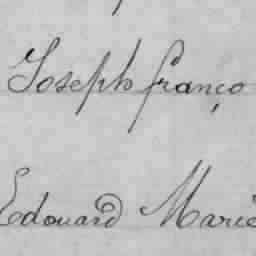 Joseph franço
Edouard Marie